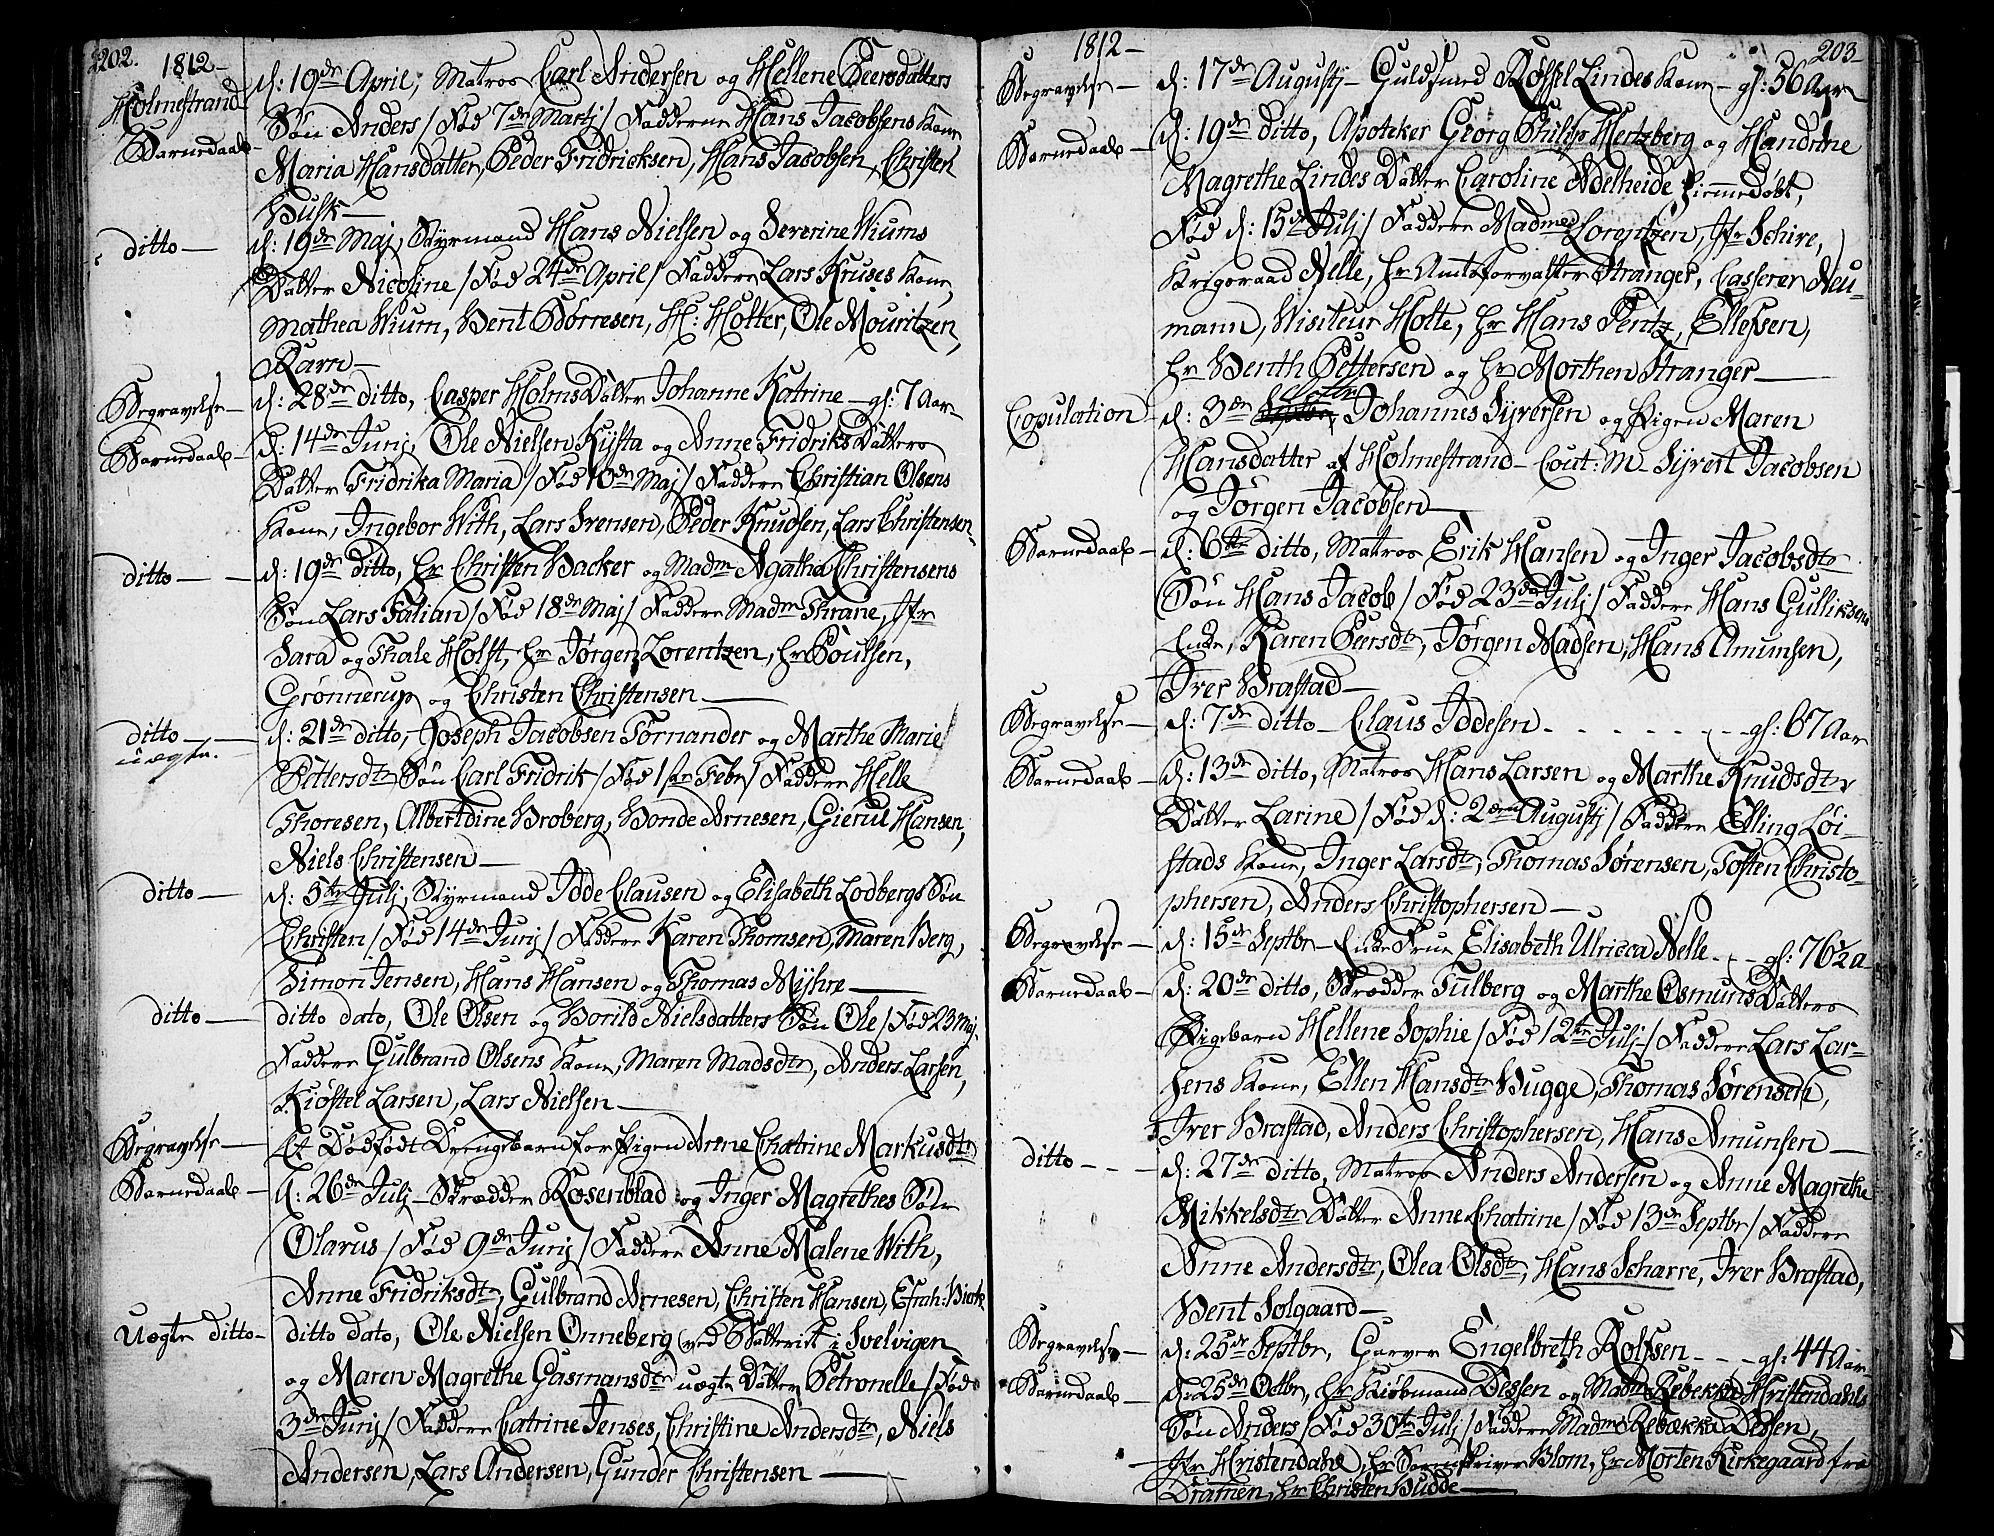 202. 1812-
Holmestrand
d: 19de April, Matros Carl Andersen og Hellene Peersdatters
Barnedaab-
Søn Anders / Fød 7de Martj / Faddere Hans Jacobsens Kone
Maria Hansdatter, Peder Fridricksen, Hans Jacobsen, Christen
Busk-
ditto- d: 19de Maj, Styrmand Hans Nielsen og Severine Wiums
Datter Nicoline / Fød 24de April / Faddere Lars Kruses Kone,
Mathea Wium, Bent Børresen, H: Holter, Ole Mouritzen,
Karn-
Begravelse- d: 28de ditto, Casper Holms Datter Johanne Katrine - gl: 7 Aar-
Barnedaab- d: 14de Junj, Ole Nielsen Kysta og Anne Fridriks Datters
Datter Fridrika Maria / Fød 10de Maj / Faddere Christian Olsens
Kone, Ingebor With, Lars Svensen, Peder Knudsen, Lars Christensen-
ditto- - d: 19de ditto, Hr Christen Backer og Madm Agatha Christensens
Søn Lars Falian / Fød 18de Maj / Faddere Madm Thrane, Jfr
Sara og Thale Holst, Hr Jørgen Lorentzen, Hr Poulsen,
Grønnerup og Christen Christensen-
ditto- - d: 21de ditto, Joseph Jacobsen Tørnander og Marthe Marie
uægte.
Pettersdtr Søn Carl Fridrik / Fød 1ste Febr / Faddere Helle
Thoresen, Albertdine Broberg, Bonde Arnesen, Gierul Hansen,
Niels Christensen-
ditto- d: 5te Julj, Styrmand Idde Clausen og Elisabeth Lodbergs Søn
Christen / Fød 14de Junj / Faddere Karen Thomsen, Maren Berg,
Simon Jensen, Hans Hansen og Thomas Myhre-
ditto- ditto dato, Ole Olsen og Borild Nielsdatters Søn Ole / Fød 23 Maj-
Faddere Gulbrand Olsens Kone, Maren Madsdtr, Anders Larsen,
Kiøstel Larsen, Lars Nielsen-
Begravelse- Et Dødfødt Drengebarn for Pigen Anne Chatrine Markusdtr
Barnedaab- d: 26de Julj- Skrædder Rosenblad og Inger Magrethes Søn
Olarus / Fød 9de Junj / Faddere Anne Malene With,
Anne Fridriksdtr, Gulbrand Arnesen, Christen Hansen, Efrah: Birk
Uægte ditto- ditto dato, Ole Nielsen Onneberg (ved Batteriet i Svelvigen
og Maren Magrethe Gasmansdtr uægte Datter Petronelle / Fød
3de Junj / Faddere Catrine Jenses, Christine Andersdtr, Niels
Andersen, Lars Andersen, Gunder Christensen-
1812- 203-
Begravelse- d: 17de Augustj- Guldsmed Roffel Lindes Kone- gl: 56 Aar
Barnedaab- d: 19de ditto, Apoteker Georg Philip Hertzberg og Handrine
Magrethe Lindes Datter Caroline Adelheide hiemmedøbt,
Fød d: 15de Julj / Faddere Madme Lorentzen, Jfr Schive,
Krigsraad Nelle, Hr Amtsforvalter Stranger, Casserer Neu-
mann, Visiteur Holte, Hr Hans Pentz, Ellefsen,
Hr Benth Pettersen og Hr Morthen Stranger-
Copulation- d: 3de Octbr, Johannes Syversen og Pigen Maren
Hansdatter af Holmestrand- Cout: M- Syvert Jacobsen
og Jørgen Jacobsen-
Barnedaab- d: 6te ditto, Matros Erik Hansen og Inger Jacobsdtr
Søn Hans Jacob / Fød 23de Julj / Faddere Hans Gulliksens
Enke, Karen Peersdtr, Jørgen Madsen, Hans Amunsen,
Iver Brastad-
Begravelse- d: 7de ditto- Claus Iddesen - - - - - gl: 67 Aar
Barnedaab- d: 13de ditto, Matros Hans Larsen og Marthe Knudsdtr
Datter Larine / Fød d: 2den Augustj / Faddere Elling Løi-
stads Kone, Inger Larsdtr, Thomas Sørensen, Tosten Christo-
phersen, Anders Christophersen-
Begravelse- d: 15de Septbr- Enke Frue Elisabeth Ulricca Nelle - - gl: 76½ a
Barnedaab- d: 20de ditto, Skrædder Tulberg og Marthe Osmunds Datters
Pigebarn Hellene Sophie / Fød 12te Julj- / Faddere Lars Lar-
sens Kone, Ellen Hansdtr Bugge, Thomas Sørensen,
Iver Brastad, Anders Christophersen, Hans Amunsen-
ditto- - - d: 27de ditto, Matros Anders Andersen og Anne Magrethe
Mikkelsdtr Datter Anne Chatrine / Fød 13de Septbr / Faddere
Anne Andersdtr, Olea Olsdtr, Hans Scharre, Iver Brastad,
Bent Solgaard-
Begravelse- d: 25de Septbr, Garver Engelbreth Rolfsen - - - gl: 44 Aar
Barnedaab- d: 25de Octbr, Hr Kiøbmand Dessen og Madm Rebekka Hristendahls
Søn Anders / Fød 30te Julj / Faddere Madm Rebækka Dessen,
Jfr Hristendahl, Hr Sorenskriver Blom, Hr Morten Kirkegaard fra
Dramen, Hr Christen Budde-